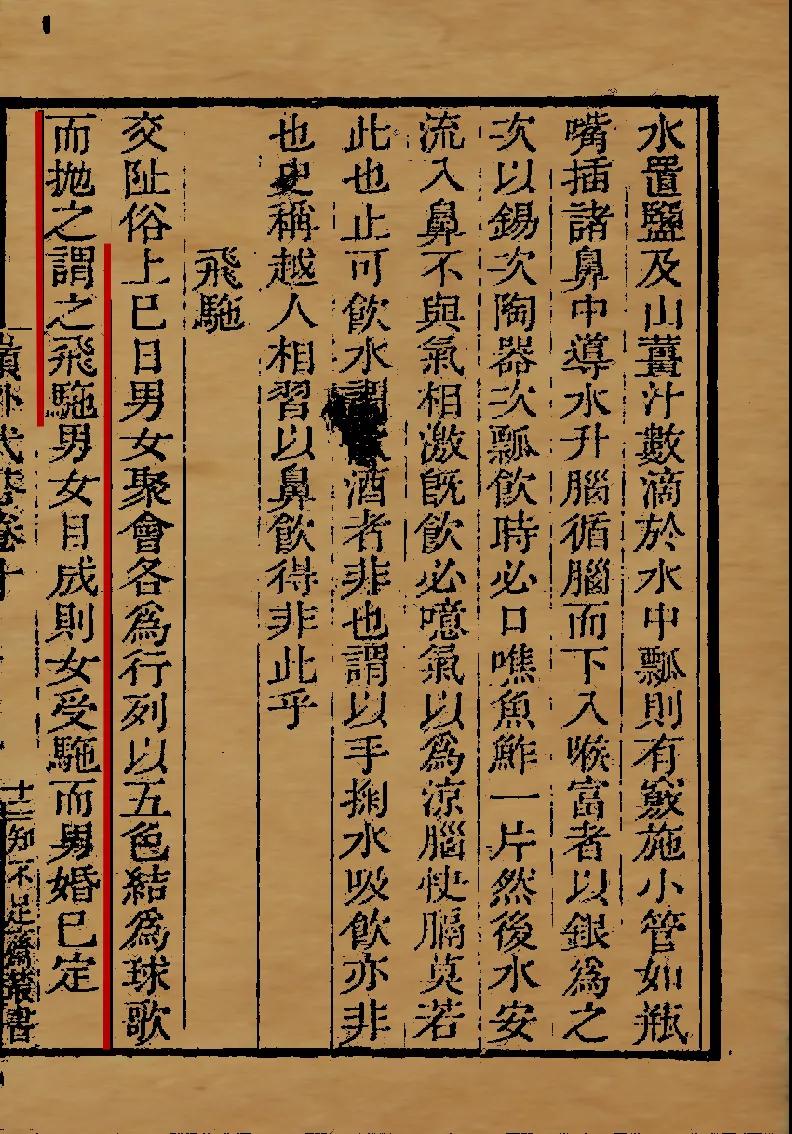 水置鹽及山薑汁數滴於水中瓢則有竅施小管如瓶
嘴插諸鼻中導水升腦循腦而下入喉富者以銀爲之
次以錫次陶器次瓢飲時必口噍魚鮓一片然後水安
流入鼻不與氣相激旣飲必噫氣以爲涼腦快膈莫若
此也止可飲水謂酒者非也謂以手掬水吸飲亦非
也史稱越人相習以鼻飲得非此乎
飛駞
交阯俗上巳日男女聚會各爲行列以五色結爲球歌
而抛之謂之飛駞男女目成則女受駞而男婚已定
外代答卷十
十三
知不足齋叢書